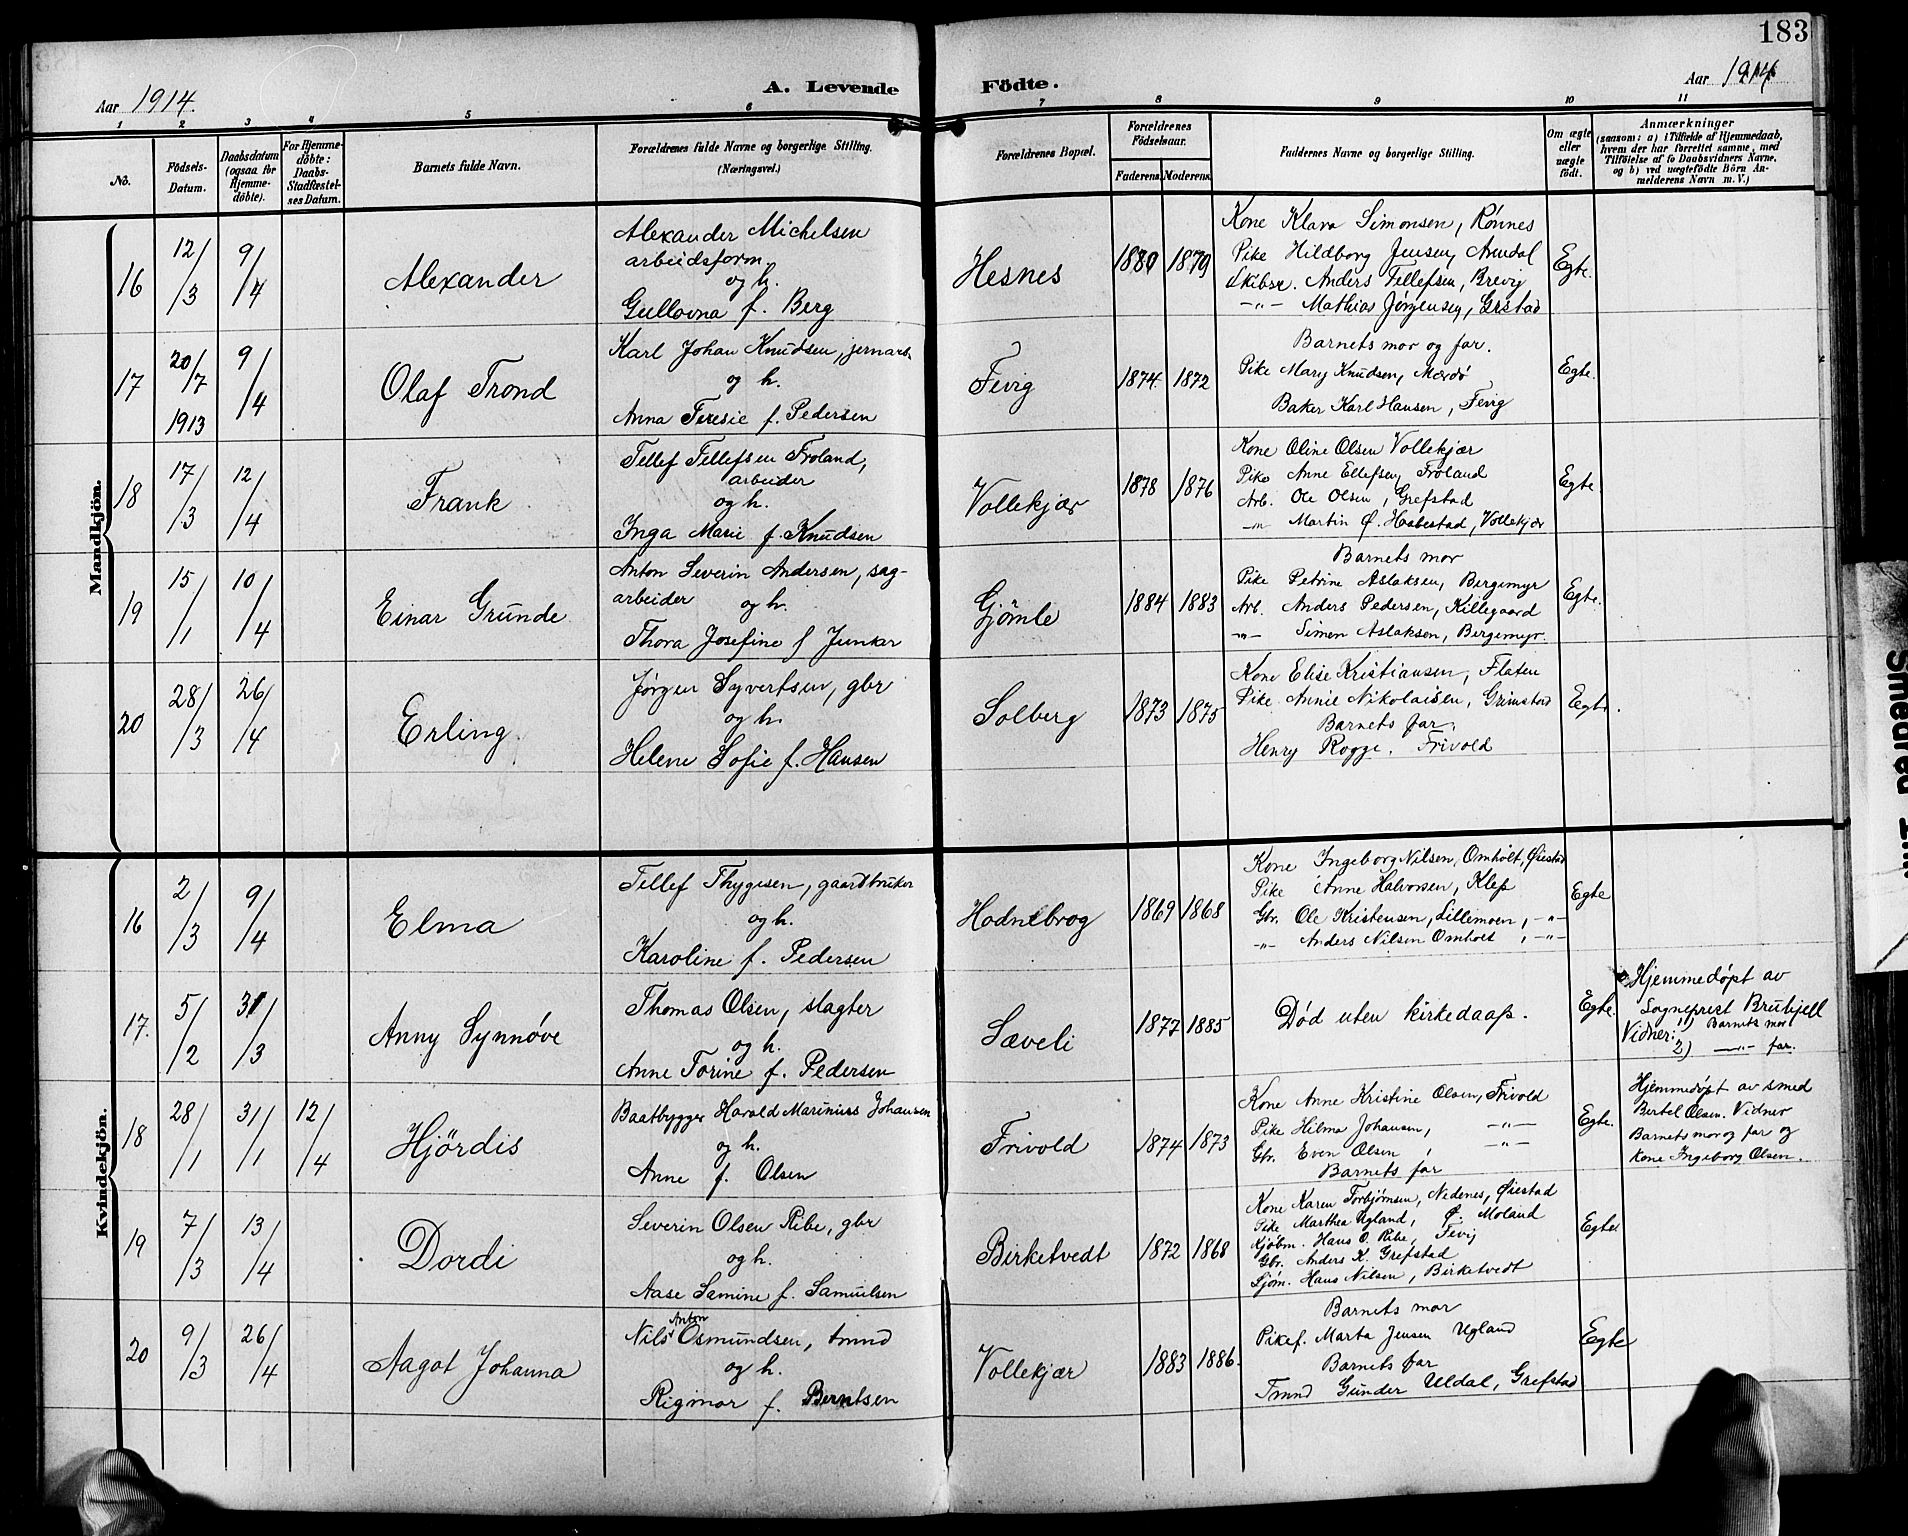 183
Aar 1914.
A. Levende Födte.
Aar 1914
1 2 3 4 5 6 7 8 9 10 11
No.
Födsels-Datum.
Daabsdatum (ogsaa for Hjemme-döbte).
For Hjemme-döbte: Daabs-Stadfæstelses Datum.
Barnets fulde Navn.
Forældrenes fulde Navne og borgerlige Stilling. (Næringsvei.)
Forældrenes Bopæl.
Forældrenes Födselsaar.
Faderens. Moderens.
Faddernes Navne og borgerlige Stilling.
Om ægte eller uægte födt.
Anmærkninger
(saasom: a) i Tilfælde af Hjemmedaab, hvem der har forrettet samme, med Tilföielse af to Daabsvidners Navne, og b) ved uægtefödte Börn Anmelderens Navn m. V.)
Mandkjön.
16 12/3 9/4 Alexander
Alexander Michelsen
arbeidsform.
og h.
Gullovna f. Berg
Hesnes 1880 1879
Kone Klara Simonsen, Rønnes
Pike Hildborg Jensen, Arendal
Skibsr. Anders Tellefsen, Brevig
-"- Mathias Jørgensen, Grstad
Egte.
17 20/7 1913 9/4 Olaf Trond
Karl Johan Knudsen, jernarb.
og h.
Anna Teresie f. Pedersen
Fevig 1874. 1872
Barnets mor og far.
Pike Mary Knudsen, Mærdö
Baker Karl Hansen, Fevig
Egte.
18 17/3 12/4 Frank
Tellef Tellefsen Froland,
arbeider
og h.
Inga Marie f. Knudsen
Vollekjær 1878 1876
Kone Oline Olsen Vollekjær
Pike Anne Ellefsen, Froland
Arb. Ole Olsen, Grefstad
-"- Martin Ø. Hasbestad, Vollekjær
Egte.
19 15/1 10/4 Einar Grunde
Anton Severin Andersen, sag-
arbeider og h.
Thora Josefine f Junker
Gjömle 1884 1883
Barnets mor
Pike Petrine Aslaksen, Bergemyr
Arb. Anders Pedersen, Killegaard
-"- Simen Aslaksen, Bergemyr.
Egte.
20 28/3 26/4 Erling.
Jørgen Syvertsen, gbr
og h.
Helene Sofie f. Hansen
Solberg 1873 1875
Kone Elise Kristiansen, Flaten
Pike Annie Nikolaisen, Grimstad
Barnets far.
Henry Rogge. Frivold
Egte.
Kvindekjön.
16 2/3 9/4 Elma
Tellef Thygesen, gaardbruker
og h.
Karoline f. Pedersen
Hodnebrog 1869 1868
Kone Ingeborg Nilsen, Omholt, Øiestad
Pike Anne Halvorsen, Klep
Gbr. Ole Kristensen, Lillemoen, -"-
-"- Anders Nilsen Omholt, -"-
Egte
17. 5/2 31/3 Anny Synnøve
Thomas Olsen, slagter
og h.
Anne Torine f. Pedersen
Sæveli 1877 1885
Død uten kirkedaap.
Egte.
Hjemmedøpt av
Sogneprest Brukjell
Vidner: 1) Barnets mor
2) -"- far.
18 28/1 31/1 12/4 Hjördis
Baatbygger Harald Marinius Johansen
og h.
Anne f. Olsen
Frivold 1874 1873
Kone Anne Kristine Olsen, Frivold
Pike Hilma Johansen, -"-
Gbr. Even Olsen -"-
Barnets far
Egte.
Hjemmedøpt av smed
Bertel Olsen. Vidner
Barnets mor og far og
kone Ingeborg Olsen.
19 7/3 13/4 Dordi
Severin Olsen Ribe, gbr
og h.
Aase Samine f. Samuelsen
Birketvedt 1872 1868
Kone Karen Torbjørnsen, Nedenes, Øiestad
Pike Marthea Ugland, Ø. Moland
Kjøbm. Hans O. Ribe, Fevig
Gbr. Anders K. Grefstad
Sjøm. Hans Nilsen, Birketvedt
Egte
20 9/3 26/4 Aagot Johanna
Nils Anton Osmundsen, tmnd
og h.
Rigmor f. Berntsen
Vollekjær 1883 1886.
Barnets mor
Pike f. Marta Jensen Ugland
Barnets far
Tmnd Gunder Uldal, Grefstad
Egte